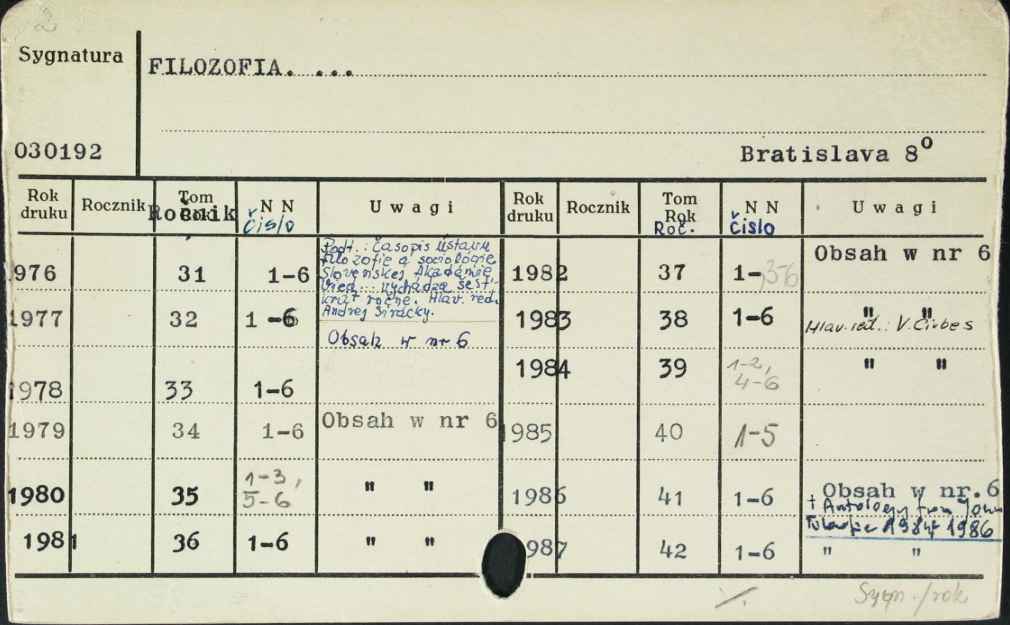 2
Sygnatura
FILOZOFIA. ...
030192
Bratislava 8o
Rok druku Rocznik Tom Rok Ročnik N N Čislo Uwagi Rok druku Rocznik Tom Rok Roč. N N Čislo Uwagi
Podt.: Časopis ústavu
filozofie a sociologie
Slovenskej Akadémie
Vied... vychádza šest-
krátročne. Hlav. red.
Andrej Sirácky.
1976 31 1-6
1977 32 1-6 Obsah w nr 6
1978 33 1-6
1979 34 1-6 Obsah w nr 6
1980 35 1-3, 5-6 " "
1981 36 1-6 " "
1982 37 1-6 Obsah w nr 6
1983 38 1-6 " "
Hlav. red.: V.
1984 39 1-2, 4-6 " "
1985 40 1-5
1986 41 1-6 Obsah w nr.6
+ Antology from
1984 1986
987 42 1-6 " "
Sygn./rok